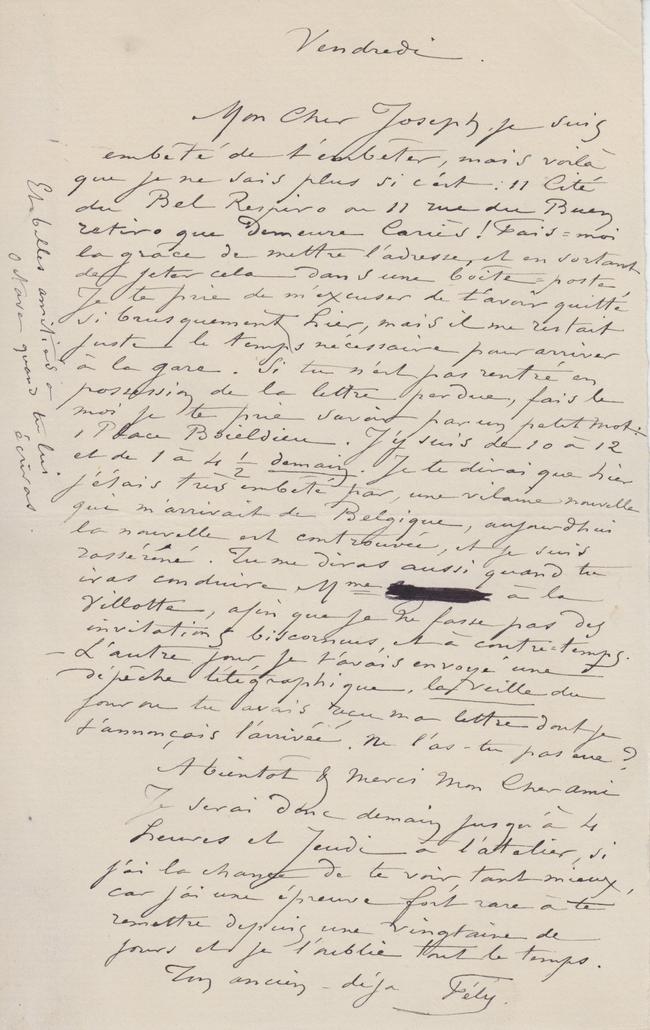 Vendredi.
Mon Cher Joseph, je suis
embêté de t'embêter, mais voilà
que je ne sais plus si c'est : 11 Cité
du Bel Respiro ou 11 rue du Buen
retiro que Demeure Cariès ! Fais-moi
la grâce de mettre l'adresse, et en sortant
de jeter cela dans une boîte-poste,
Je te prie de m'excuser de t'avoir quitté
si brusquement hier, mais il me restait
juste le temps nécessaire pour arriver
à la gare. Si tu n'es pas rentré en
possession de la lettre perdue, fais le
moi je te prie savoir par un petit mot :
1 Place Boieldieu. J'y suis de 10 à 12
et de 1 à 4 ½ demain. Je te dirai que hier
j'étais très embêté par, une vilaine nouvelle
qui m'arrivait de Belgique, aujourd'hui
la nouvelle est controuvée, et je suis
rasséréné. Tu me diras aussi quand tu
iras conduire Mme à la
Villotte, afin que je ne fasse pas des
invitations biscornues, et à contre-temps.
– L'autre jour je t'avais envoyé une
dépêche télégraphique, la veille du
jour ou tu avais reçu ma lettre dont je
t'annonçais l'arrivée. Ne l'as-tu pas eue ?
A bientôt & merci Mon Cher ami
Je serai donc demain jusqu'à 4
heures et Jeudi à l'atelier, si
j'ai la chance de te voir, tant mieux,
car j'ai une épreuve fort rare à te
remettre depuis une vingtaine de
jours et je l'oublie tout le temps.
Ton ancien – déja Fély.
Et belles amitiés à
quand tu lui
écriras.